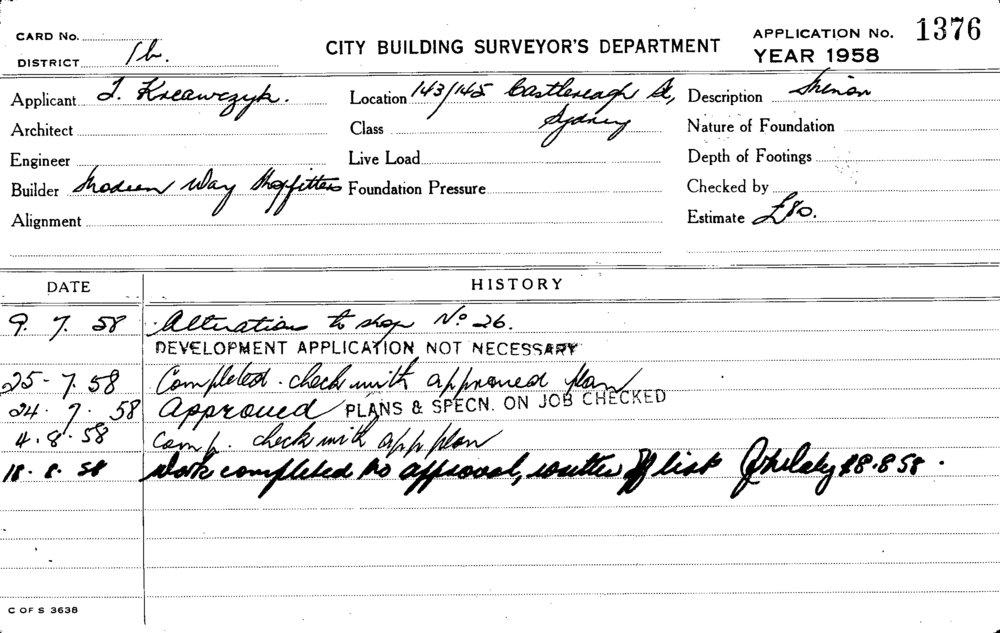 CARD No.
DISTRICT 1b.
CITY BUILDING SURVEYOR'S DEPARTMENT
APPLICATION No. 1376
YEAR 1958
Applicant J. Krcawczyk. Location 143/145 Castlereagh St, Description Minor
Architect Class Sydney Nature of Foundation
Engineer Live Load Depth of Footings
Builder Modern Way Shopfitters Foundation Pressure Checked by
Alignment Estimate £80.
DATE HISTORY
9. 7. 58 Alterations to shop No 26.
DEVELOPMENT APPLICATION NOT NECESSARY
25-7.58 Completed. check with approved plan
24. 7. 58 Approved PLANS & SPECN. ON JOB CHECKED
4.8.58 Comp. check with app plan
18.8.58 Work completed to approval, written off list 18.8.58.
C OF S 3638